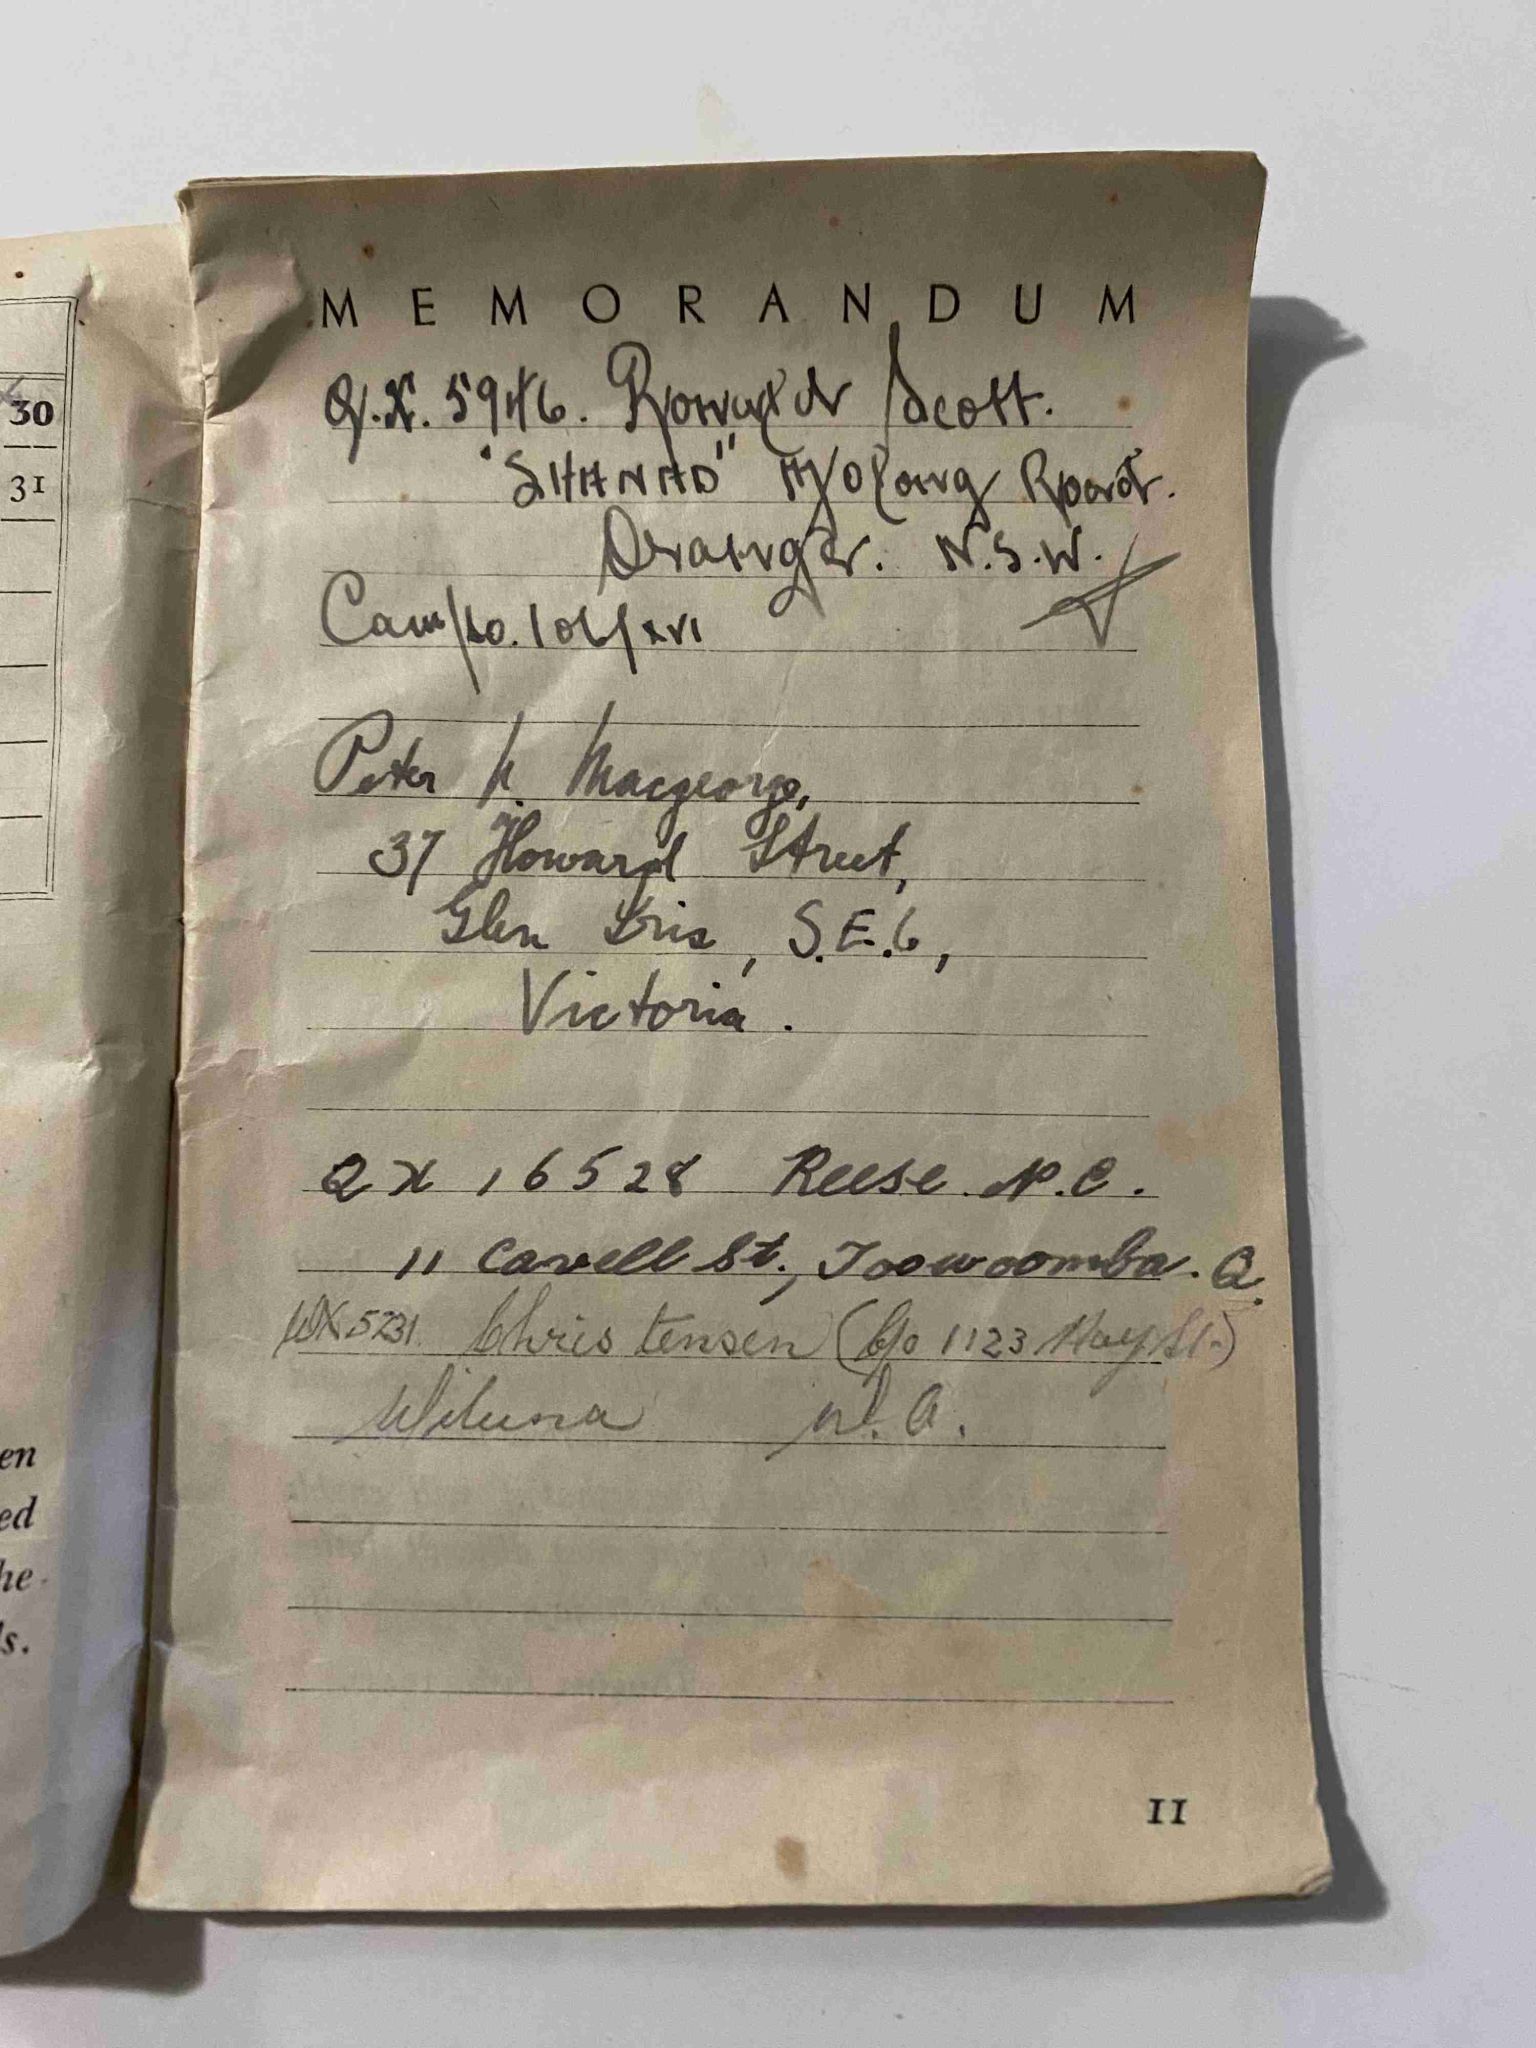 30
31
en
ed
he
s.
MEMORANDUM
Q.X. 5946. Scott.
"SHANAD" Road.
Orange. N.S.W.
Camp/no. 106/xvi
Peter Macgeorge,
37 Howard Street,
Glen Iris, S.E.6,
Victoria.
QX 16528 Reese N.C.
11 Cavell St., Toowoomba. Q.
WX5231. Christensen (C/o 1123 Hay St.)
Wiluna W.A.
II